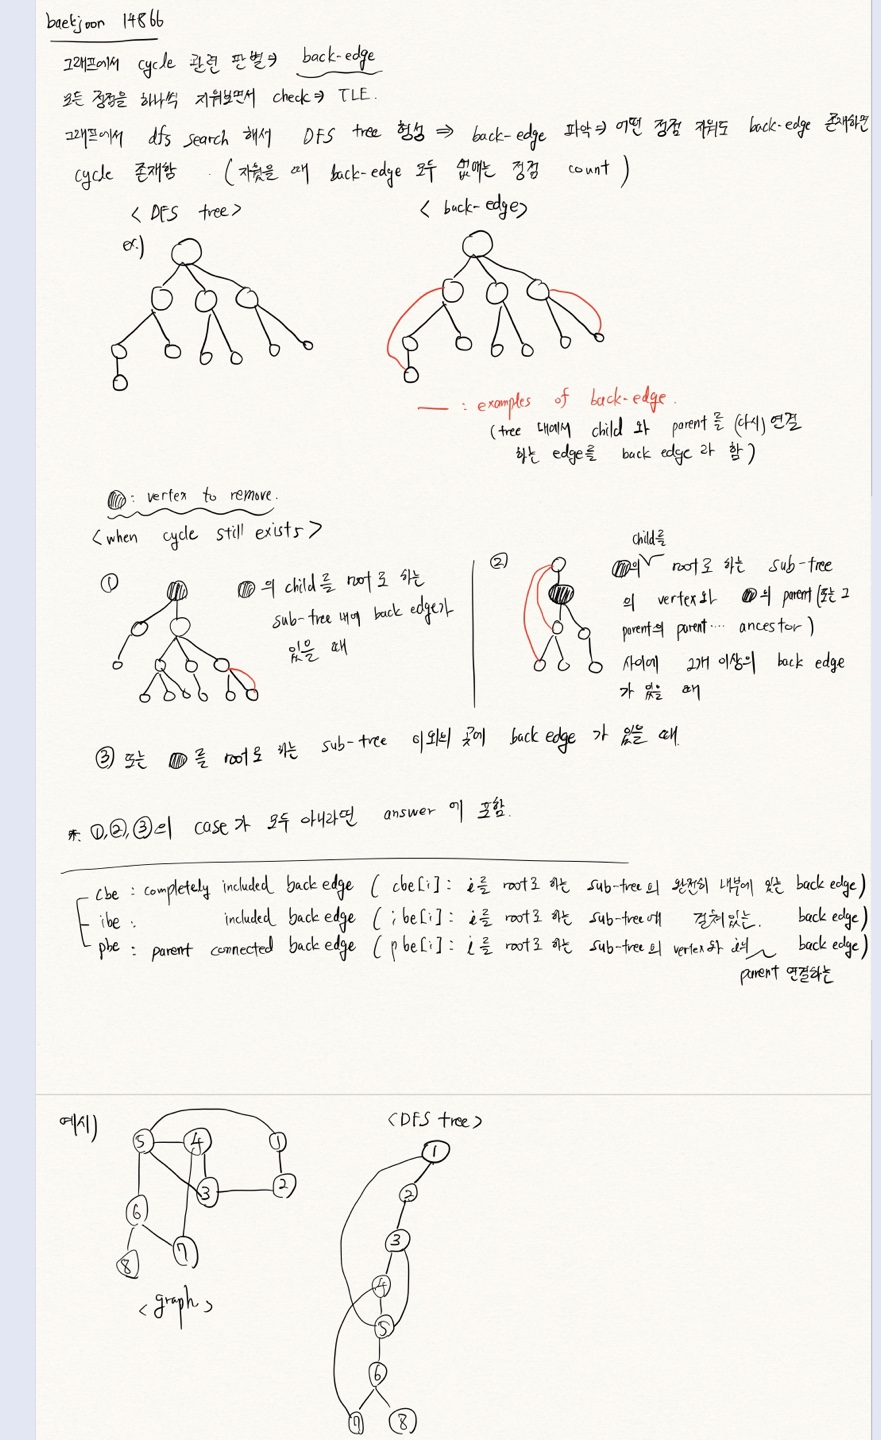 baekjoon 14866
그래프에서 cycle 관련 판별⇒ back-edge
모든 정점을 하나씩 지워보면서 check⇒ TLE.
그래프에서 dfs search 해서 DFS tree 형성 ⇒ back-edge 파악⇒ 어떤 정점 지워도 back-edge 존재하면
cycle 존재함 (지웠을 때 back-edge 모두 없애는 정점 count)
< DFS tree>
< back-edge>
ex.)
— : examples of back-edge.
(tree 내에서 child 와 parent를 (다시) 연결
하는 edge를 back edge 라 함)
: vertex to remove.
<when cycle still exists>
①
의 child를 root로 하는
sub-tree 내에 back edge가
있을 때
②
child를
의 root로 하는 sub-tree
의 vertex와 의 parent(또는 그
parent의 parent.... ancestor)
사이에 2개 이상의 back edge
가 있을 때
③ 또는 를 root로 하는 sub-tree 이외의 곳에 back edge 가 있을 때.
①,②,③의 case가 모두 아니라면 answer 에 포함.
cbe : completely included back edge ( cbe[i] : i를 root로 하는 sub-tree의 완전히 내부에 있는 back edge)
ibe : included back edge ( ibe[i] : i를 root로 하는 sub-tree에 걸쳐있는. back edge)
pbe : parent connected back edge ( pbe[i] : i를 root로 하는 sub-tree의 vertex와 i의 back edge)
parent 연결하는
예시)
<DFS tree>
5 4 1
3 2
6
7
8
<graph>
1
2
3
4
5
6
7 8